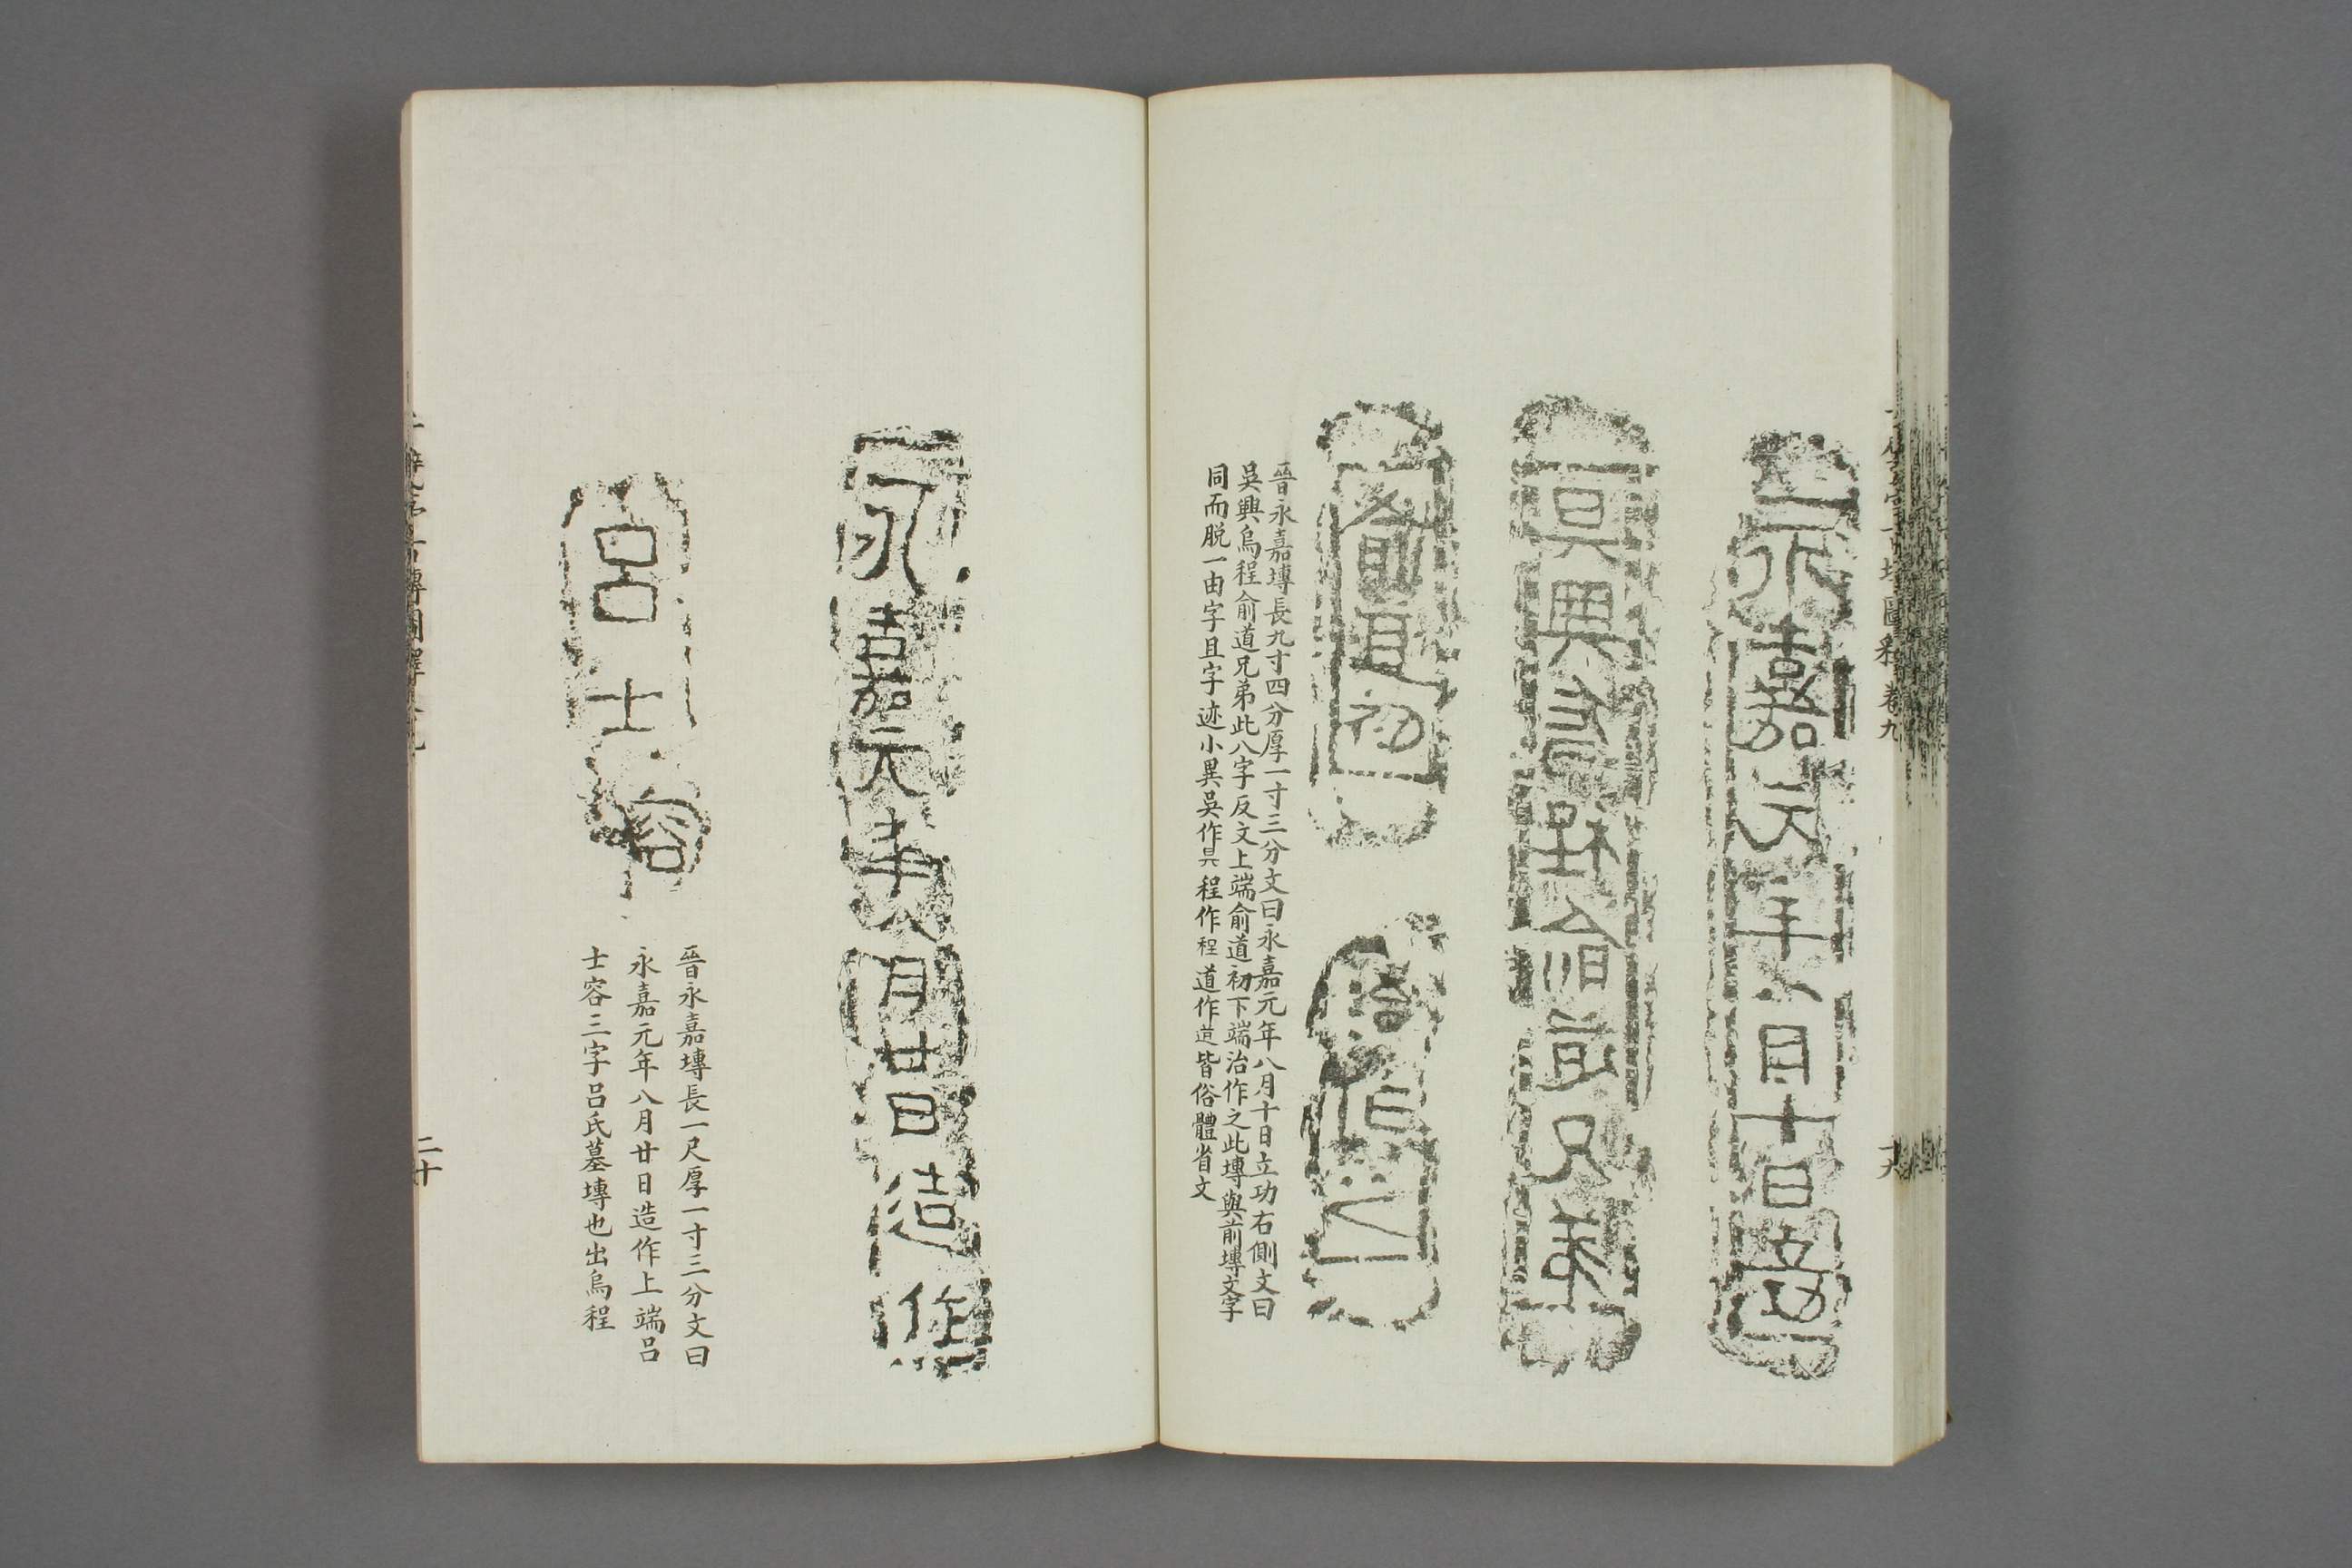 永嘉元年八月十日立功
吳興烏程俞道兄弟
俞道初
治作之
晉永嘉塼長九寸四分厚一寸三分文曰永嘉元年八月十日立功右側文曰
吳興烏程俞道兄弟此八字反文上端俞道初下端治作之此塼與前塼文字
同而脱一由字且字迹小異吳作㒷程作程道作道皆俗體省文
卷九
十九
永嘉元年八月廿日造作
呂士容
晉永嘉塼長一尺厚一寸三分文曰
永嘉元年八月廿日造作上端呂
士容三字呂氏墓塼也出烏程
二十